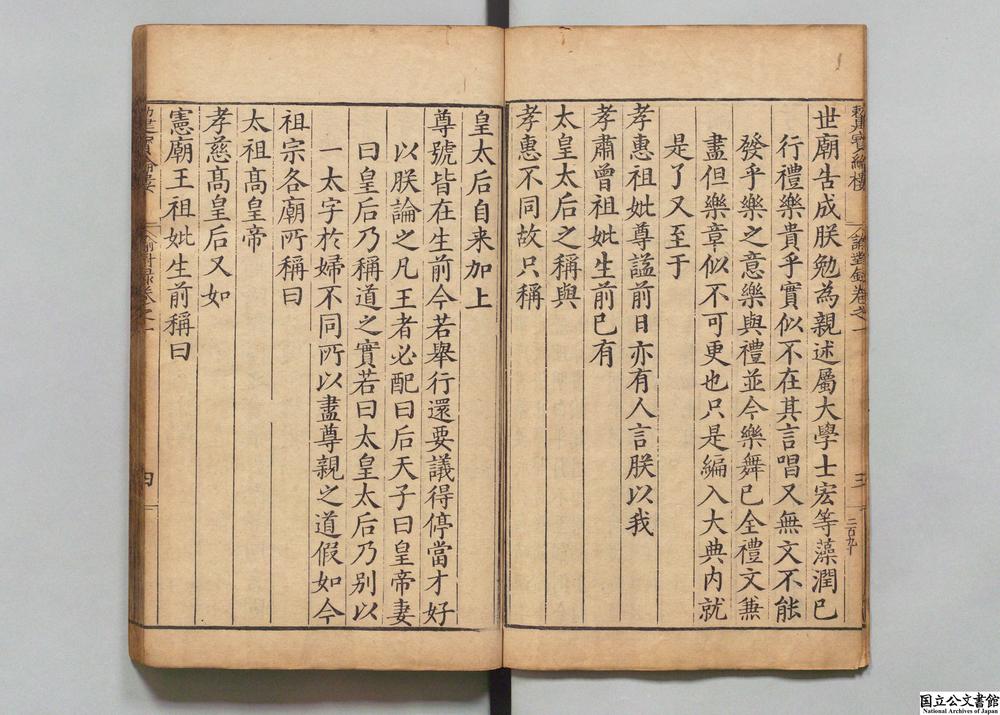 世廟告成朕勉為親述屬大學士宏等藻潤已
行禮樂貴乎實似不在其言唱又無文不能
發乎樂之意樂與禮並今樂舞已全禮文無
盡但樂章似不可更也只是編入大典内就
是了又至于
孝惠祖妣尊諡前日亦有人言朕以我
孝肅曾祖妣生前已有
太皇太后之稱與
孝惠不同故只稱
皇太后自来加上
尊號皆在生前今若舉行還要議得停當才好
以朕論之凡王者必配曰后天子曰皇帝妻
曰皇后乃稱道之實若曰太皇太后乃别以
一太字於婦不同所以盡尊親之道假如今
祖宗各廟所稱曰
太祖高皇帝
孝慈高皇后又如
憲廟王祖妣生前稱曰
諭對錄卷之一
三
四
国立公文書館
National Archives of Japan